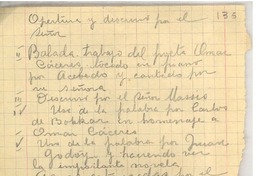 133
Opertura y discurso por el
señor
II Balada. trabajo del poeta Omar
Cáceres tocado en piano
por Acebedo y cantado por
su señora
III Discurso por el señor
IV Uso de la palabra por Carlos
de Rokhar en homenaje a
Omar Cáceres
V Uso de la palabra por Juvan
Godoy haciendo ver
la importante novela
por el